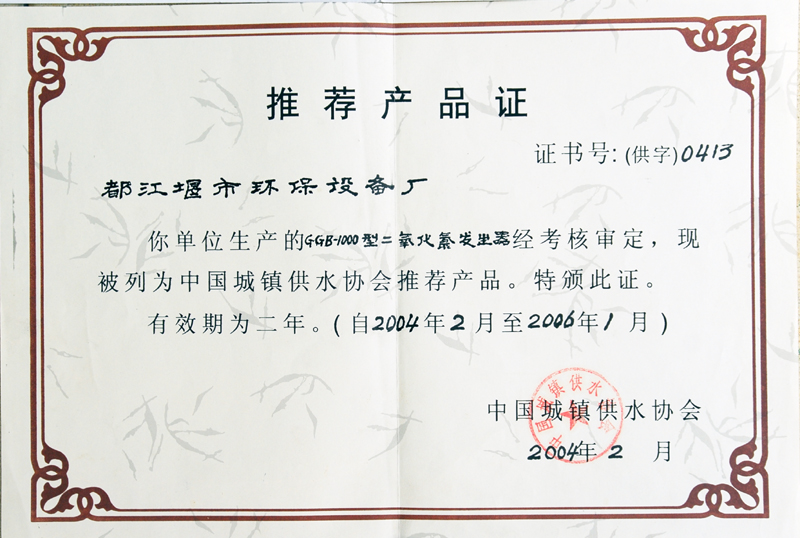 推荐产品证
证书号:(供字)0413
都江堰市环保设备厂
你单位生产的GGB-1000型二氧化氯发生器经考核审定，现
被列为中国城镇供水协会推荐产品。特颁此证。
有效期为二年。(自2004年2月至2006年1月)
中国城镇供水协会
中国城镇供水协会
2004年2 月